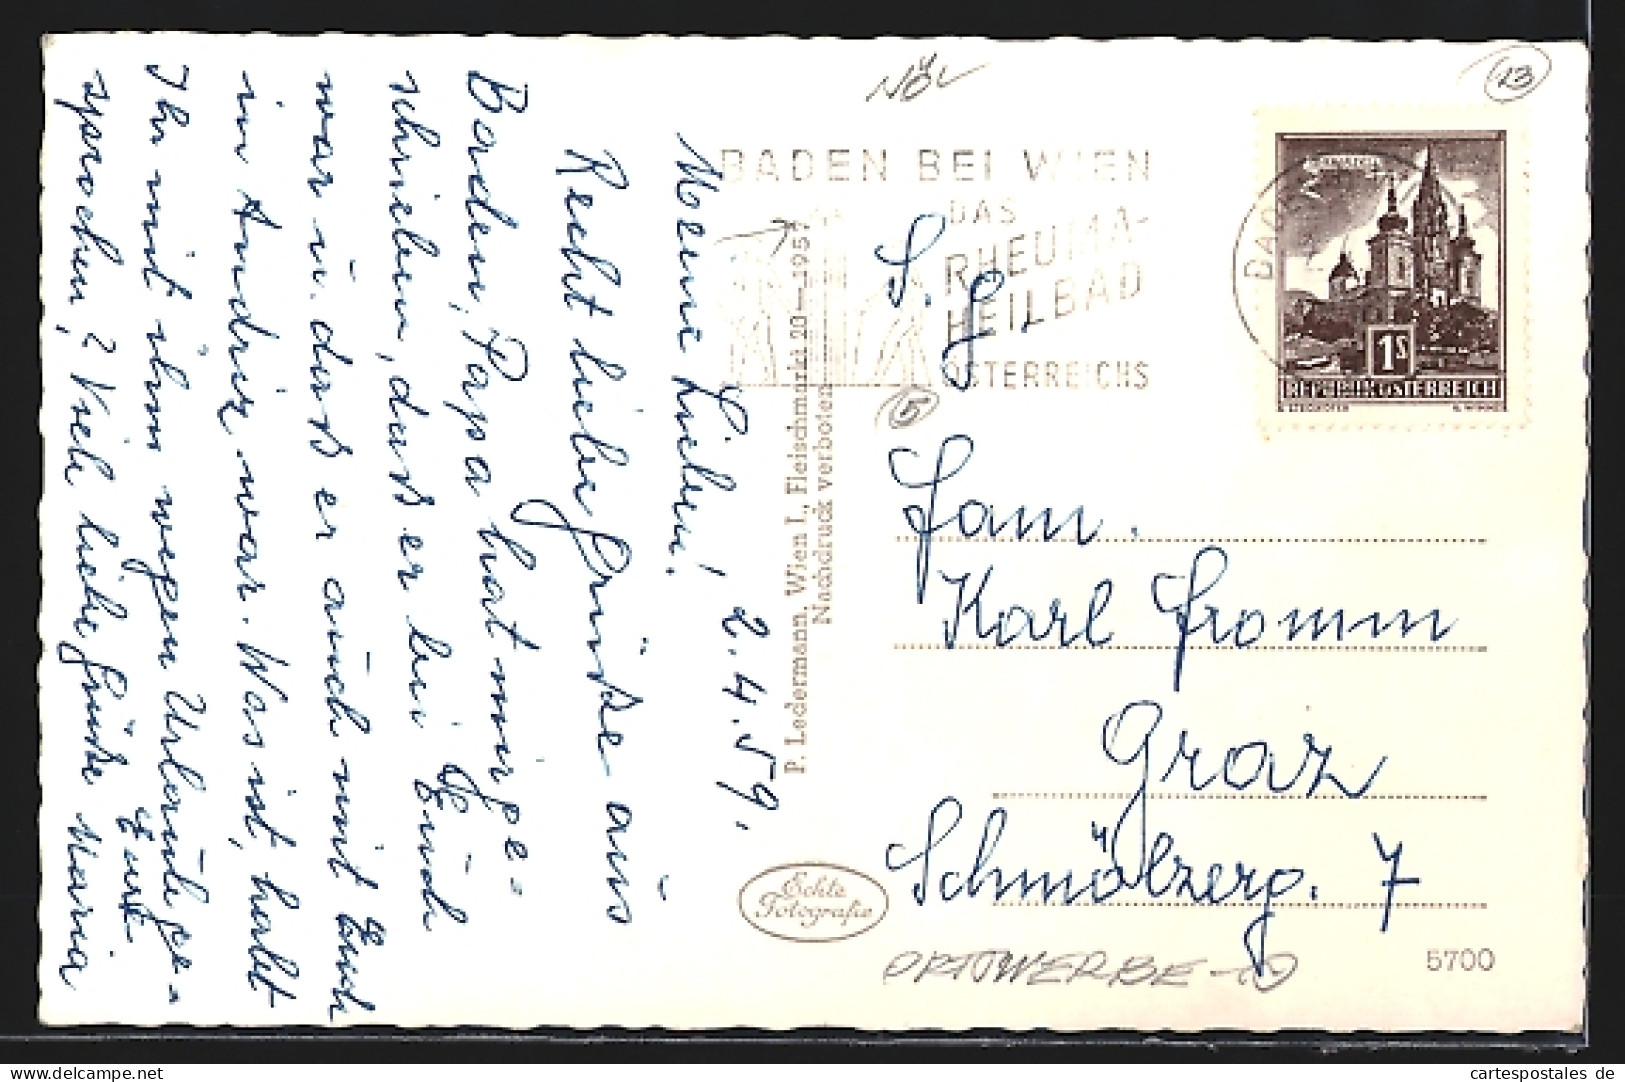 NÖL
13
BADEN BEI WIEN
DAS
RHEUMA-
HEILBAD
ÖSTERREICHS
BADEN
MARIAZELL
1S
REPUBLIK ÖSTERREICH
2.4.59.
Meine Lieben!
Recht liebe Grüße aus
Baden, Papa hat mir ge-
schrieben, daß er bei Euch
war u. daß er auch mit Euch
im Andritz war. Was ist, habt
Ihr mit ihm wegen Urlaub ge-
sprochen? Viele liebe Grüße Maria
P. Ledermann, Wien I., Fleischmarkt 20—1957
Nachdruck verboten
S. g.
5
Fam.
Karl Fromm
Graz
Schmölzerg. 7
Echte
Fotografie
ORTSWERBE
5700
cartespostales de